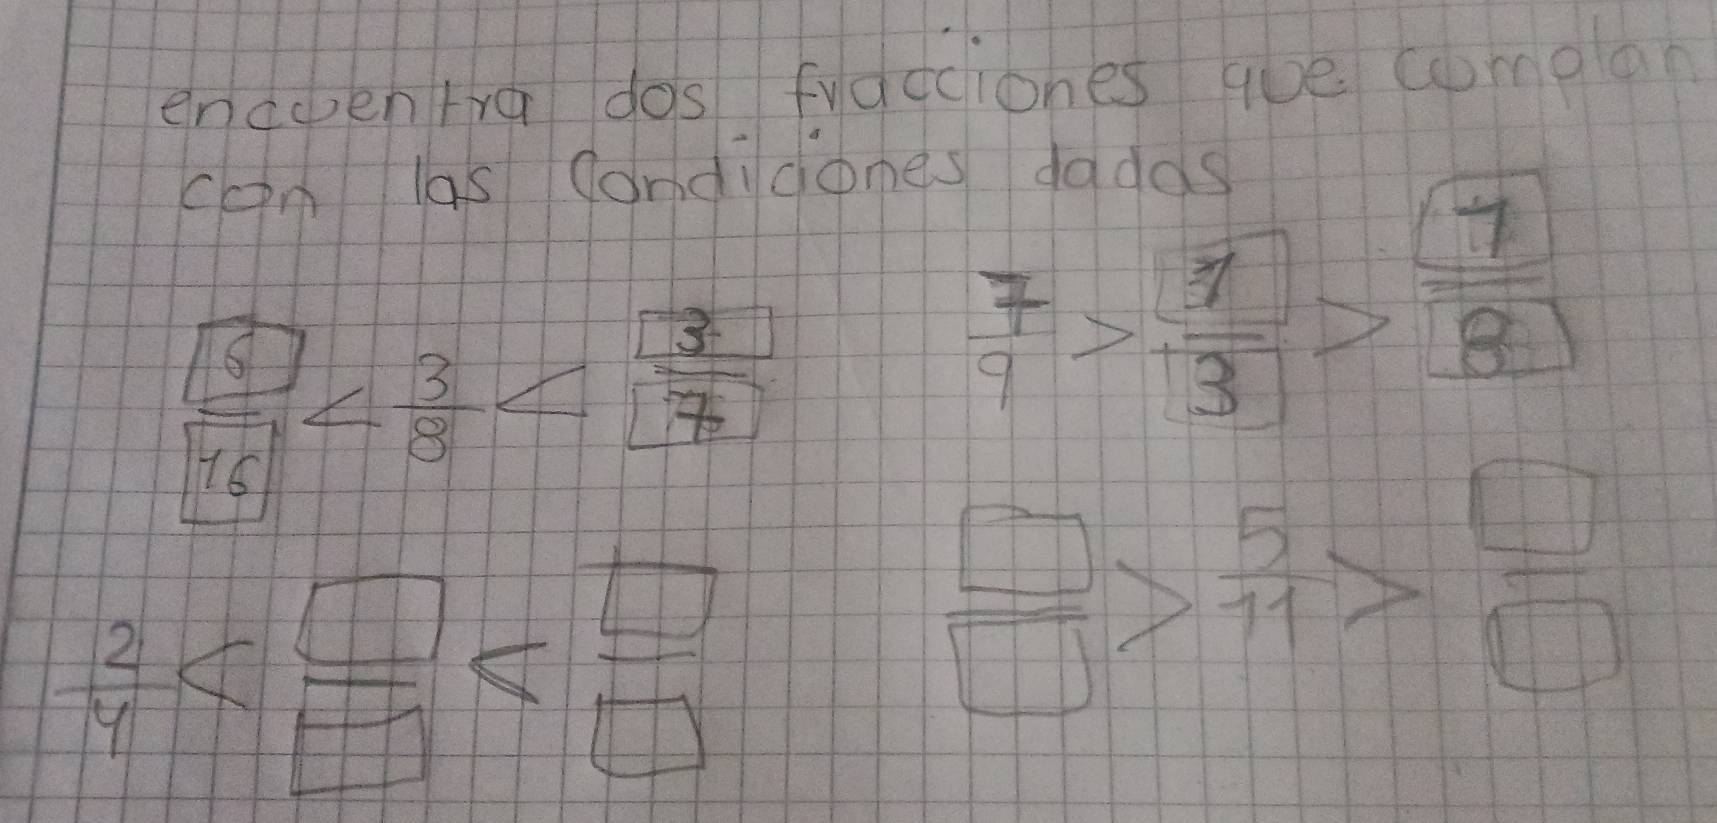 encuentra dos fracciones que complan
con las condiciones dadas
6/16 < 3/8 < 3/7
7/9 > 1/3 > 1/8
2/4 < □/□ < □/□
□/□ > 5/11 > □/□